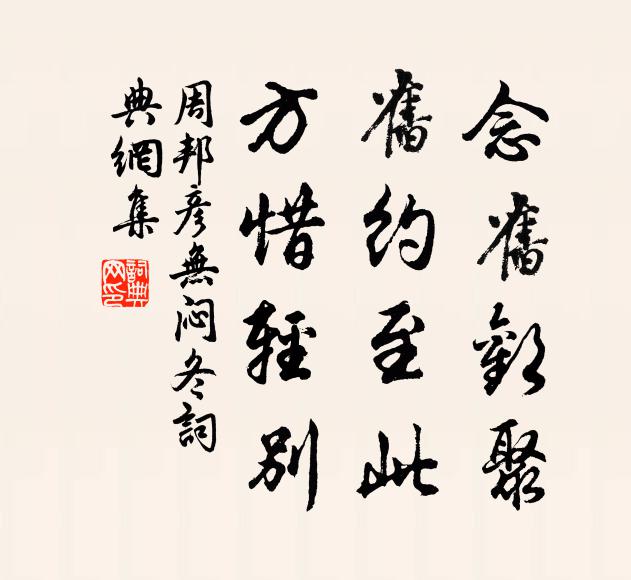 念舊歡聚
舊約至此
方惜輕別
周邦彥無悶冬詞
典網集
詞典網印